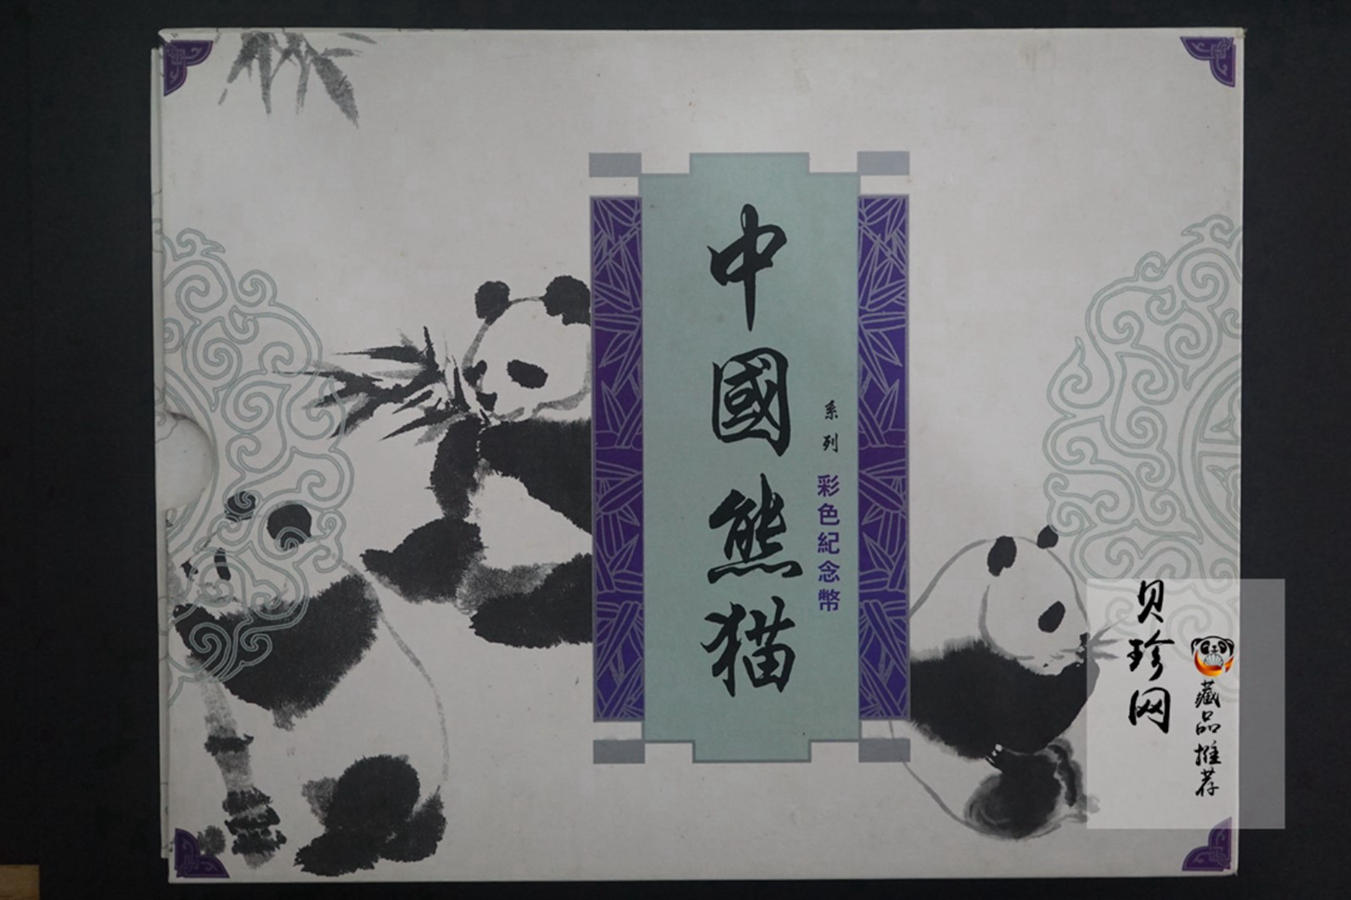 中國熊猫
系列
彩色紀念幣
贝珍网
藏品推荐